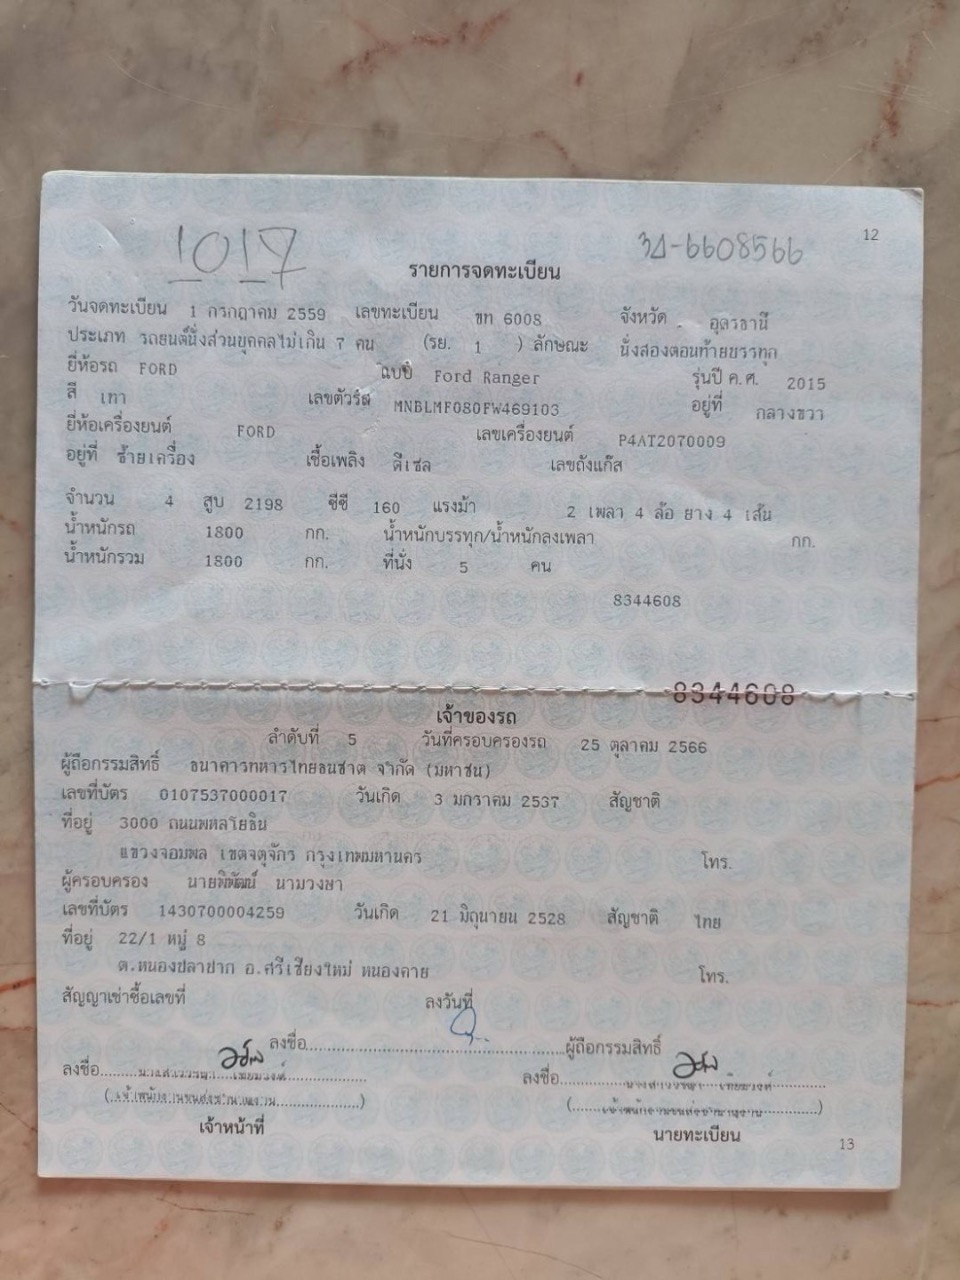 12
1017
รายการจดทะเบียน
วันจดทะเบียน 1 กรกฎาคม 2559 เลขทะเบียน ขท 6008 จังหวัด อุดรธานี
ประเภท รถยนต์นั่งส่วนบุคคลไม่เกิน 7 คน (รย. 1 ) ลักษณะ นั่งสองตอนท้ายบรรทุก
ยี่ห้อรถ FORD แบบ Ford Ranger รุ่นปี ค.ศ. 2015
สี เทา เลขตัวรถ MNBLMF080FW469103 อยู่ที่ กลางขวา
ยี่ห้อเครื่องยนต์ FORD เลขเครื่องยนต์ P4AT2070009
อยู่ที่ ซ้ายเครื่อง เชื้อเพลิง ดีเซล เลขถังแก๊ส
จำนวน 4 สูบ 2198 ซีซี 160 แรงม้า 2 เพลา 4 ล้อ ยาง 4 เส้น
น้ำหนักรถ 1800 กก. น้ำหนักบรรทุก/น้ำหนักลงเพลา กก.
น้ำหนักรวม 1800 กก. ที่นั่ง 5 คน
8344608
8344608
เจ้าของรถ
ลำดับที่ 5 วันที่ครอบครองรถ 25 ตุลาคม 2566
ผู้ถือกรรมสิทธิ์ ธนาคารทหารไทยธนชาต จำกัด (มหาชน)
เลขที่บัตร 0107537000017 วันเกิด 3 มกราคม 2537 สัญชาติ
ที่อยู่ 3000 ถนนพหลโยธิน
แขวงจอมพล เขตจตุจักร กรุงเทพมหานคร โทร.
ผู้ครอบครอง นายพิพัฒน์ นามวงษา
เลขที่บัตร 1430700004259 วันเกิด 21 มิถุนายน 2528 สัญชาติ ไทย
ที่อยู่ 22/1 หมู่ 8
ต.หนองปลาปาก อ.ศรีเชียงใหม่ หนองคาย โทร.
สัญญาเช่าซื้อเลขที่ ลงวันที่
ลงชื่อ ผู้ถือกรรมสิทธิ์
ลงชื่อ ลงชื่อ
เจ้าหน้าที่ นายทะเบียน
13